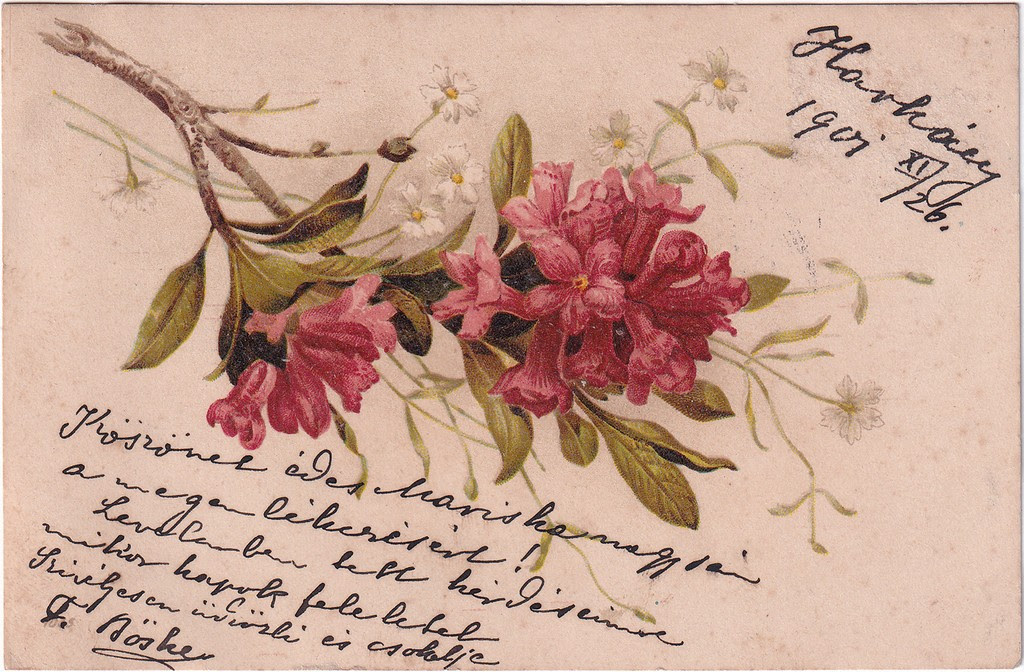 Harkány
1901 XI/26.
Köszönet édes Mariska nagyság
a megemlékezésért!
Levelemben tett kérdéseimre
mikor kapok feleletet
Szivélyesen üdvözli és csókolja
Böske